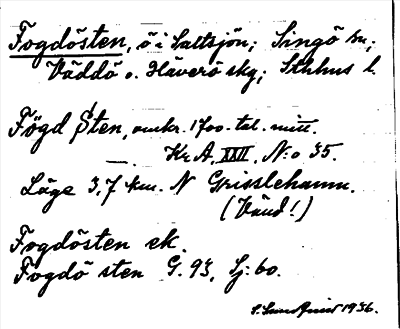 Fogdösten, ö i Saltsjön; Singö sn;
Väddö o. Häverö skg; Sthlms l.
Fögd Sten, omkr. 1700-tal. mitt.
—. Kr.A. XXII, N:o 35.
Läge 3,7 km. N Grisslehamn.
(Vänd!)
Fogdösten ek.
Fogdö sten G. 93, Sj: 60.
1936.